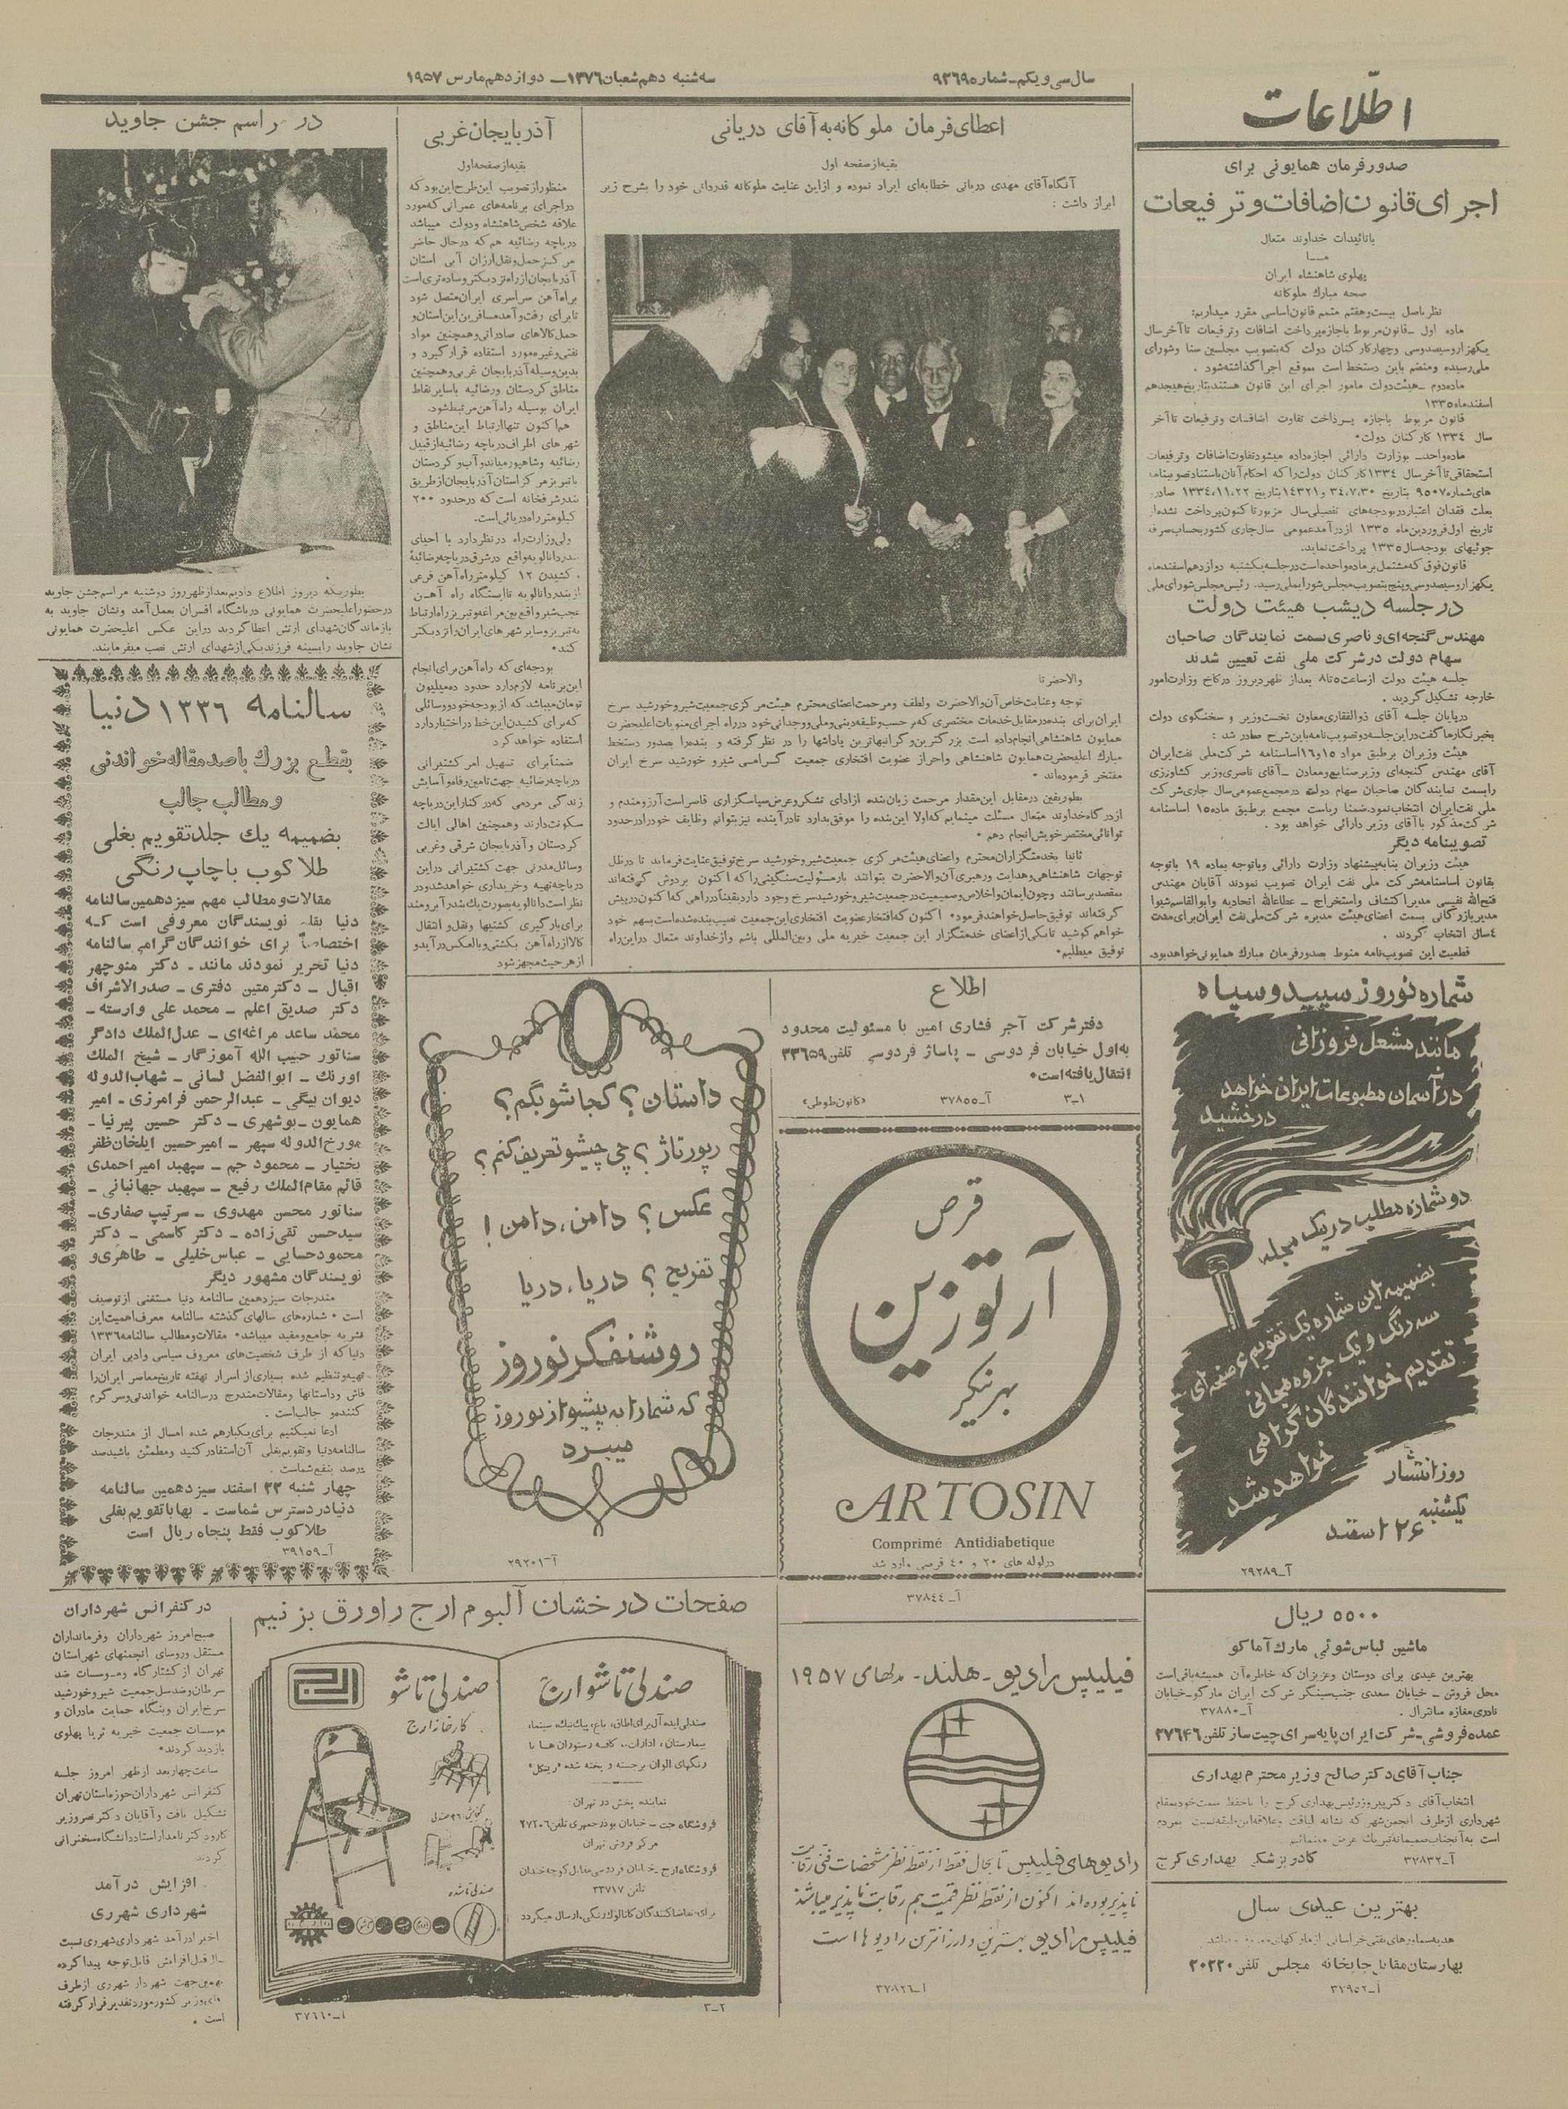 اطلاعات
سال سی و یکم ـ شماره ۹۲۶۹
سه‌شنبه دهم شعبان ۱۳۷۶ ـ دوازدهم مارس ۱۹۵۷
صدور فرمان همایونی برای
اجرای قانون اضافات و ترفیعات
با تائیدات خداوند متعال
مـا
پهلوی شاهنشاه ایران
صحه مبارك ملوكانه
نظر باصل بیست و هفتم متمم قانون اساسی مقرر میداریم:
ماده اول ـ قانون مربوط باجازه پرداخت اضافات و ترفیعات تا آخر سال
یکهزار و سیصد و سی و چهار کارکنان دولت که بتصویب مجلسین سنا و شورای
ملی رسیده و منضم باین دستخط است بموقع اجرا گذاشته شود .
ماده دوم ـ هیئت دولت مامور اجرای این قانون هستند بتاریخ هیجدهم
اسفند ماه ۱۳۳۵
قانون مربوط باجازه پرداخت تفاوت اضافات و ترفیعات تا آخر
سال ۱۳۳٤ کارکنان دولت.
ماده واحد ـ بوزارت دارائی اجازه داده میشود تفاوت اضافات و ترفیعات
استحقاقی تا آخر سال ۱۳۳٤ کارکنان دولت را که احکام آنان باستناد تصویبنامه
های شماره ۹۵۰۷ بتاریخ ۳٤،۷،۳۰ و ۱٤۳۲۱ بتاریخ ۱۳۳٤،۱۱،۲۲ صادر و
بعلت فقدان اعتبار در بودجه‌های تفصیلی سال مزبور تاکنون پرداخت نشده از
تاریخ اول فروردین ماه ۱۳۳۵ از درآمد عمومی سال جاری کشور بحساب صرفه
جوئیهای بودجه سال ۱۳۳۵ پرداخت نماید.
قانون فوق که مشتمل بر ماده واحده است در جلسه یکشنبه دوازدهم اسفند ماه
یکهزار و سیصد و سی و پنج بتصویب مجلس شورایملی رسید. رئیس مجلس شورای ملی
در جلسه دیشب هیئت دولت
مهندس گنجه‌ای و ناصری بسمت نمایندگان صاحبان
سهام دولت در شرکت ملی نفت تعیین شدند
جلسه هیئت دولت از ساعت ۵ تا ۸ بعد از ظهر دیروز در کاخ وزارت امور
خارجه تشکیل گردید .
در پایان جلسه آقای ذوالفقاری معاون نخست وزیر و سخنگوی دولت
بخبرنگار ما گفت در این جلسه دو تصویب نامه باین شرح صادر شد :
هیئت وزیران بر طبق مواد ۱۵ و ۱۶ اساسنامه شرکت ملی نفت ایران
آقای مهندس گنجه‌ای وزیر صنایع و معادن ـ آقای ناصری وزیر کشاورزی
را بسمت نمایندگان صاحبان سهام دولت در مجمع عمومی سال جاری شرکت
ملی نفت ایران انتخاب نمود، ضمنا ریاست مجمع بر طبق ماده ۱۵ اساسنامه
شرکت مذکور با آقای وزیر دارائی خواهد بود .
تصویبنامه دیگر
هیئت وزیران بنا به پیشنهاد وزارت دارائی و باتوجه بماده ۱۹ باتوجه
بقانون اساسنامه شرکت ملی نفت ایران تصویب نمودند آقایان مهندس
فتح‌الله نفیسی مدیر اکتشاف و استخراج ـ عطاءالله اتحادیه و ابوالقاسم شیوا
مدیر بازرگانی بسمت اعضای هیئت مدیره شرکت ملی نفت ایران برای مدت
٤ سال انتخاب گردند .
قطعیت این تصویب نامه منوط بصدور فرمان مبارك همایونی خواهد بود.
شماره نوروز سپید و سیاه
مانند مشعل فروزانی
در آسمان مطبوعات ایران خواهد
درخشید
دو شماره مطلب در یک مجله
بضمیمه این شماره یک تقویم ۶ صفحه‌ای
سه رنگ و یک جزوه مجانی
تقدیم خوانندگان گرامی
خواهد شد
روز انتشار
یکشنبه
۲۶ اسفند
آ ـ ۲۹۲۸۹
۵۵۰۰ ریال
ماشین لباس شوئی مارك آماکو
بهترین عیدی برای دوستان و عزیزان که خاطره آن همیشه باقی است
محل فروش ـ خیابان سعدی جنب سینگر شرکت ایران مارکو ـ خیابان
نادری مغازه سانترال . آ ـ ۳۷۸۸۰
عمده فروشی ـ شرکت ایران پایه سرای چیت ساز تلفن ۲۷۶۴۶
جناب آقای دکتر صالح وزیر محترم بهداری
انتخاب آقای دکتر پیروز رئیس بهداری کرج را باحفظ سمت خود بمقام
شهرداری از طرف انجمن شهر که نشانه لیاقت و علاقه این طبقه نسبت بمردم
است به آنجناب صمیمانه تبریك عرض مینمائیم
کادر پزشکی بهداری کرج آ ـ ۳۷۸۳۲
بهترین عیدی سال
بهارستان مقابل چاپخانه مجلس تلفن ۲۰۲۲۰
آ ـ ۳۷۹۵۲
اعطای فرمان ملوکانه به آقای دریانی
بقیه از صفحه اول
آنگاه آقای مهدی دریانی خطابه‌ای ایراد نموده و از این عنایت ملوکانه قدردانی خود را بشرح زیر
ابراز داشت :
والاحضرتا
توجه و عنایت خاص آن والاحضرت و لطف و مرحمت اعضای محترم هیئت مرکزی جمعیت شیر و خورشید سرخ
ایران برای بنده در مقابل خدمات مختصری که بر حسب وظیفه دینی و ملی و وجدانی خود در راه اجرای منویات اعلیحضرت
همایون شاهنشاهی انجام داده است بزرگترین و گرانبهاترین پاداشها را در نظر گرفته و بنده را بصدور دستخط
مبارك اعلیحضرت همایون شاهنشاهی و احراز عضویت افتخاری جمعیت گرامی شیر و خورشید سرخ ایران
مفتخر فرموده‌اند .
بطور یقین در مقابل این مقدار مرحمت زبان بنده از ادای تشکر و عرض سپاسگزاری قاصر است آرزومندم و
از درگاه خداوند متعال مسئلت مینمایم که اولا این بنده را موفق بدارد تا در آینده نیز بتوانم وظایف خود را در حدود
توانائی مختصر خویش انجام دهم .
ثانیا بخدمتگزاران محترم و اعضای هیئت مرکزی جمعیت شیر و خورشید سرخ توفیق عنایت فرماید تا در ظل
توجهات شاهنشاهی و هدایت و رهبری آن والاحضرت بتوانند بار مسئولیت سنگینی را که اکنون بردوش گرفته‌اند
بمقصد برسانند و چون ایمان و اخلاص و صمیمیت در جمعیت شیر و خورشید سرخ وجود دارد یقیناً در راهی که اکنون در پیش
گرفته‌اند توفیق حاصل خواهند فرمود. اکنون که افتخار عضویت افتخاری این جمعیت نصیب بنده شده است بسهم خود
خواهم کوشید تا یکی از اعضای خدمتگزار این جمعیت خیریه ملی و بین‌المللی باشم و از خداوند متعال در این راه
توفیق میطلبم.
اطلاع
دفتر شرکت آجر فشاری امین با مسئولیت محدود
به اول خیابان فردوسی ـ پاساژ فردوسی تلفن ۳۳۶۵۹
انتقال یافته است.
۱ـ۳ آ ـ ۳۷۸۵۵ «کانون طوطی»
قرص
آرتوزین
بهرینگر
ARTOSIN
Comprimé Antidiabetique
در لوله های ۲۰ و ٤۰ قرصی وارد شد
آ ـ ۳۷۸٤٤
فیلیپس رادیو ـ هلند ـ مدلهای ۱۹۵۷
رادیوهای فیلیپس تا بحال فقط از نقطه نظر مشخصات فنی رقابت
ناپذیر بوده‌اند اکنون از نقطه نظر قیمت هم رقابت ناپذیر میباشند
فیلیپس رادیو بهترین و ارزانترین رادیوها است
آ ـ ۳۷۸۲۶
آذربایجان غربی
بقیه از صفحه اول
منظور از تصویب این طرح این بود که
در اجرای برنامه‌های عمرانی که مورد
علاقه شخص شاهنشاه و دولت میباشد
دریاچه رضائیه هم که در حال حاضر
مرکز حمل و نقل ارزان آبی استان
آذربایجان از راه نزدیکتر و ساده‌تری است
براه آهن سراسری ایران متصل شود
تا برای رفت و آمد مسافرین این استان و
حمل کالاهای صادراتی و همچنین مواد
نفتی و غیره مورد استفاده قرار گیرد و
بدین وسیله آذربایجان غربی و همچنین
مناطق کردستان و رضائیه باسایر نقاط
ایران بوسیله راه آهن مرتبط شود.
هم اکنون تنها ارتباط این مناطق و
شهرهای اطراف دریاچه رضائیه از قبیل
رضائیه و شاهپور و میاندوآب و کردستان
با تبریز مرکز استان آذربایجان از طریق
بندر شرفخانه است که در حدود ۲۰۰
کیلومتر راه دریائی است.
ولی وزارت راه در نظر دارد با احیای
بندر دانالو به واقع در شرق دریاچه رضائیه
و کشیدن ۱۲ کیلومتر راه آهن فرعی
از بندر دانالو به تا ایستگاه راه آهن
عجب شیر واقع بین مراغه و تبریز راه ارتباط
به تبریز و سایر شهرهای ایران را نزدیکتر
کند.
بودجه‌ای که راه آهن برای انجام
این برنامه لازم دارد حدود ده میلیون
تومان میباشد که از بودجه خود و وسائلی
که برای کشیدن این خط در اختیار دارد
استفاده خواهد کرد
ضمناً برای تسهیل امر کشتیرانی
دریاچه رضائیه جهت تامین رفاه و آسایش
زندگی مردمی که در کنار این دریاچه
سکونت دارند و همچنین اهالی ایالت
کردستان و آذربایجان شرقی و غربی
وسائل مدرنی جهت کشتیرانی در این
دریاچه تهیه و خریداری خواهد شد و در
نظر است دانالو به بصورت یك بندر آبرومند
برای بارگیری کشتیها و نقل و انتقال
کالا از راه آهن بکشتی و بالعکس در آید و
از هر حیث مجهز شود
داستان؟ کجاشو بگم؟
رپورتاژ؟ چی چیشو تعریف کنم؟
عکس؟ دامن، دامن!
تفریح؟ دریا، دریا
روشنفکر نوروز
که شما را به پیشواز نوروز
میبرد
آ ـ ۲۹۲۰۱
صفحات درخشان آلبوم ارج را ورق بزنیم
صندلی تاشو ارج
صندلی ایده آل برای اطاق، باغ، پیك نیك، سینما،
بیمارستان، ادارات، کافه رستوران ها با
رنگهای الوان برجسته و پخته شده «رینکل»
نماینده پخش در تهران:
فروشگاه جت ـ خیابان بوذرجمهری تلفن ۲۷۲۰۶
مرکز فروش تهران
فروشگاه ارج ـ خیابان فردوسی مقابل کوچه خندان
تلفن ۳۳۷۱۷
برای تقاضا کنندگان کاتالوك رنگی ارسال میگردد
صندلی تاشو
کارخانه ارج
صندلی تا شده
۲ـ۳
آ ـ ۳۷۶۱۰
در مراسم جشن جاوید
بطوریکه دیروز اطلاع دادیم بعد از ظهر روز دوشنبه مراسم جشن جاوید
در حضور اعلیحضرت همایونی در باشگاه افسران بعمل آمد و نشان جاوید به
بازماندگان شهدای ارتش اعطا گردید در این عکس اعلیحضرت همایونی
نشان جاوید را بسینه فرزند یکی از شهدای ارتش نصب میفرمایند.
سالنامه ۱۳۳۶ دنیا
بقطع بزرك باصد مقاله خواندنی
و مطالب جالب
بضمیمه یك جلد تقویم بغلی
طلاکوب باچاپ رنگی
مقالات و مطالب مهم سیزدهمین سالنامه
دنیا بقلم نویسندگان معروفی است که
اختصاصاً برای خوانندگان گرامی سالنامه
دنیا تحریر نمودند مانند ـ دکتر منوچهر
اقبال ـ دکتر متین دفتری ـ صدرالاشراف
دکتر صدیق اعلم ـ محمد علی وارسته ـ
محمد ساعد مراغه‌ای ـ عدل‌الملك دادگر
سناتور حبیب الله آموزگار ـ شیخ الملك
اورنك ـ ابوالفضل لسانی ـ شهاب الدوله
دیوان بیگی ـ عبدالرحمن فرامرزی ـ امیر
همایون ـ بوشهری ـ دکتر حسین پیرنیا ـ
مورخ الدوله سپهر ـ امیر حسین ایلخان ظفر
بختیار ـ محمود جم ـ سپهبد امیر احمدی
قائم مقام الملك رفیع ـ سپهبد جهانبانی ـ
سناتور محسن مهدوی ـ سرتیپ صفاری ـ
سید حسن تقی زاده ـ دکتر کاسمی ـ دکتر
محمود حسابی ـ عباس خلیلی ـ طاهری و
نویسندگان مشهور دیگر
مندرجات سیزدهمین سالنامه دنیا مستغنی از توصیف
است . شماره‌های سالهای گذشته سالنامه معرف اهمیت این
نشریه جامع و مفید میباشد. مقالات و مطالب سالنامه ۱۳۳۶
دنیا که از طرف شخصیت‌های معروف سیاسی و ادبی ایران
تهیه و تنظیم شده بسیاری از اسرار نهفته تاریخ معاصر ایران را
فاش و داستانها و مقالات مندرج در سالنامه خواندنی و سرگرم
کننده و جالب است .
ادعا نمیکنیم برای یکبار هم شده امسال از مندرجات
سالنامه دنیا و تقویم بغلی آن استفاده کنید و مطمئن باشید صد
درصد بنفع شماست .
چهار شنبه ۲۲ اسفند سیزدهمین سالنامه
دنیا در دسترس شماست ـ بها باتقویم بغلی
طلاکوب فقط پنجاه ریال است
آ ـ ۳۹۱۵۹
در کنفرانس شهرداران
صبح امروز شهرداران و فرمانداران
مستقل و روسای انجمنهای شهر استان
تهران از کشتارگاه و موسسات ضد
سرطان و ضد سل جمعیت شیر و خورشید
سرخ ایران و بنگاه حمایت مادران و
موسسات جمعیت خیریه ثریا پهلوی
بازدید کردند.
ساعت چهار بعد از ظهر امروز جلسه
کنفرانس شهرداران حوزه استان تهران
تشکیل یافت و آقایان دکتر نصر وزیر
کار و دکتر نامدار استاد دانشگاه سخنرانی
کردند
افزایش درآمد
شهرداری شهرری
اخیرا درآمد شهرداری شهرری نسبت
بسال قبل افزایش قابل توجه پیدا کرده
بهمین جهت شهردار شهرری از طرف
وزیر کشور مورد تقدیر قرار گرفته
است .